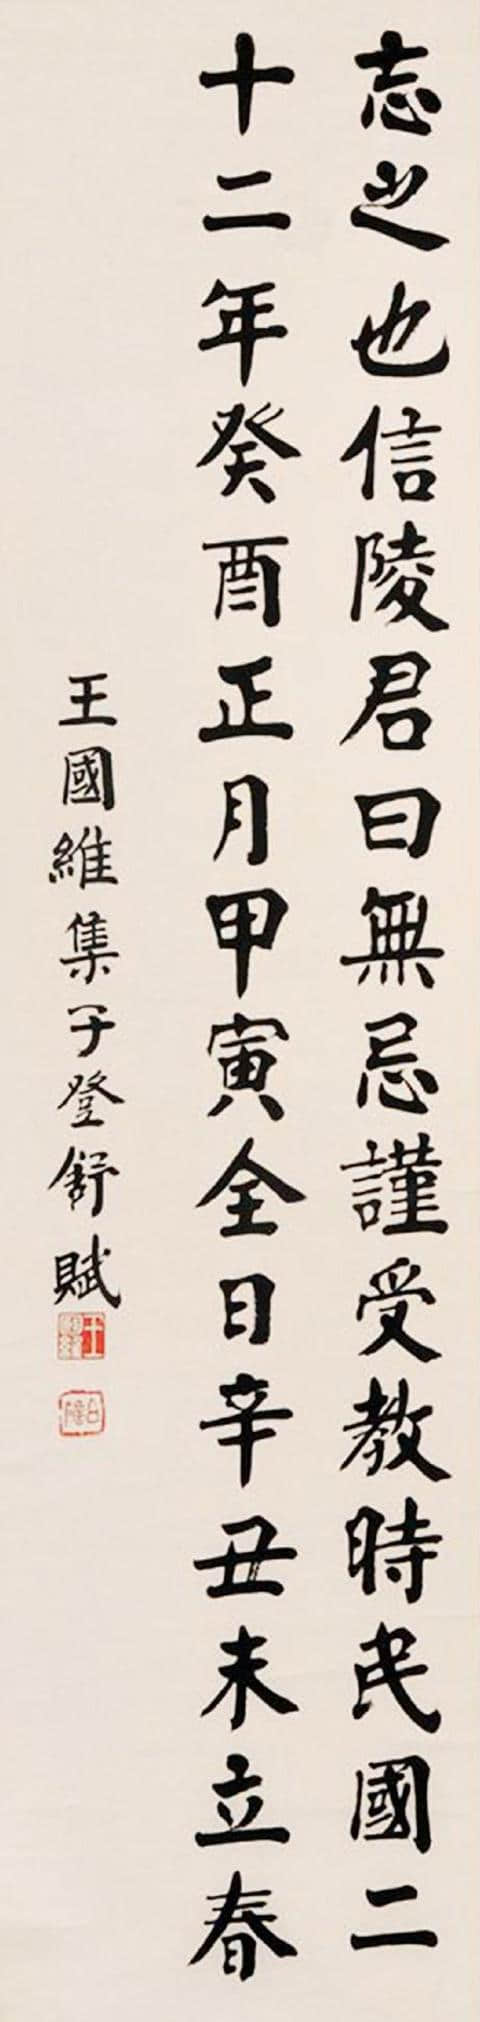 忘之也信陵君曰無忌謹受教時民國二
十二年癸酉正月甲寅全日辛丑未立春
王國維集子登舒賦